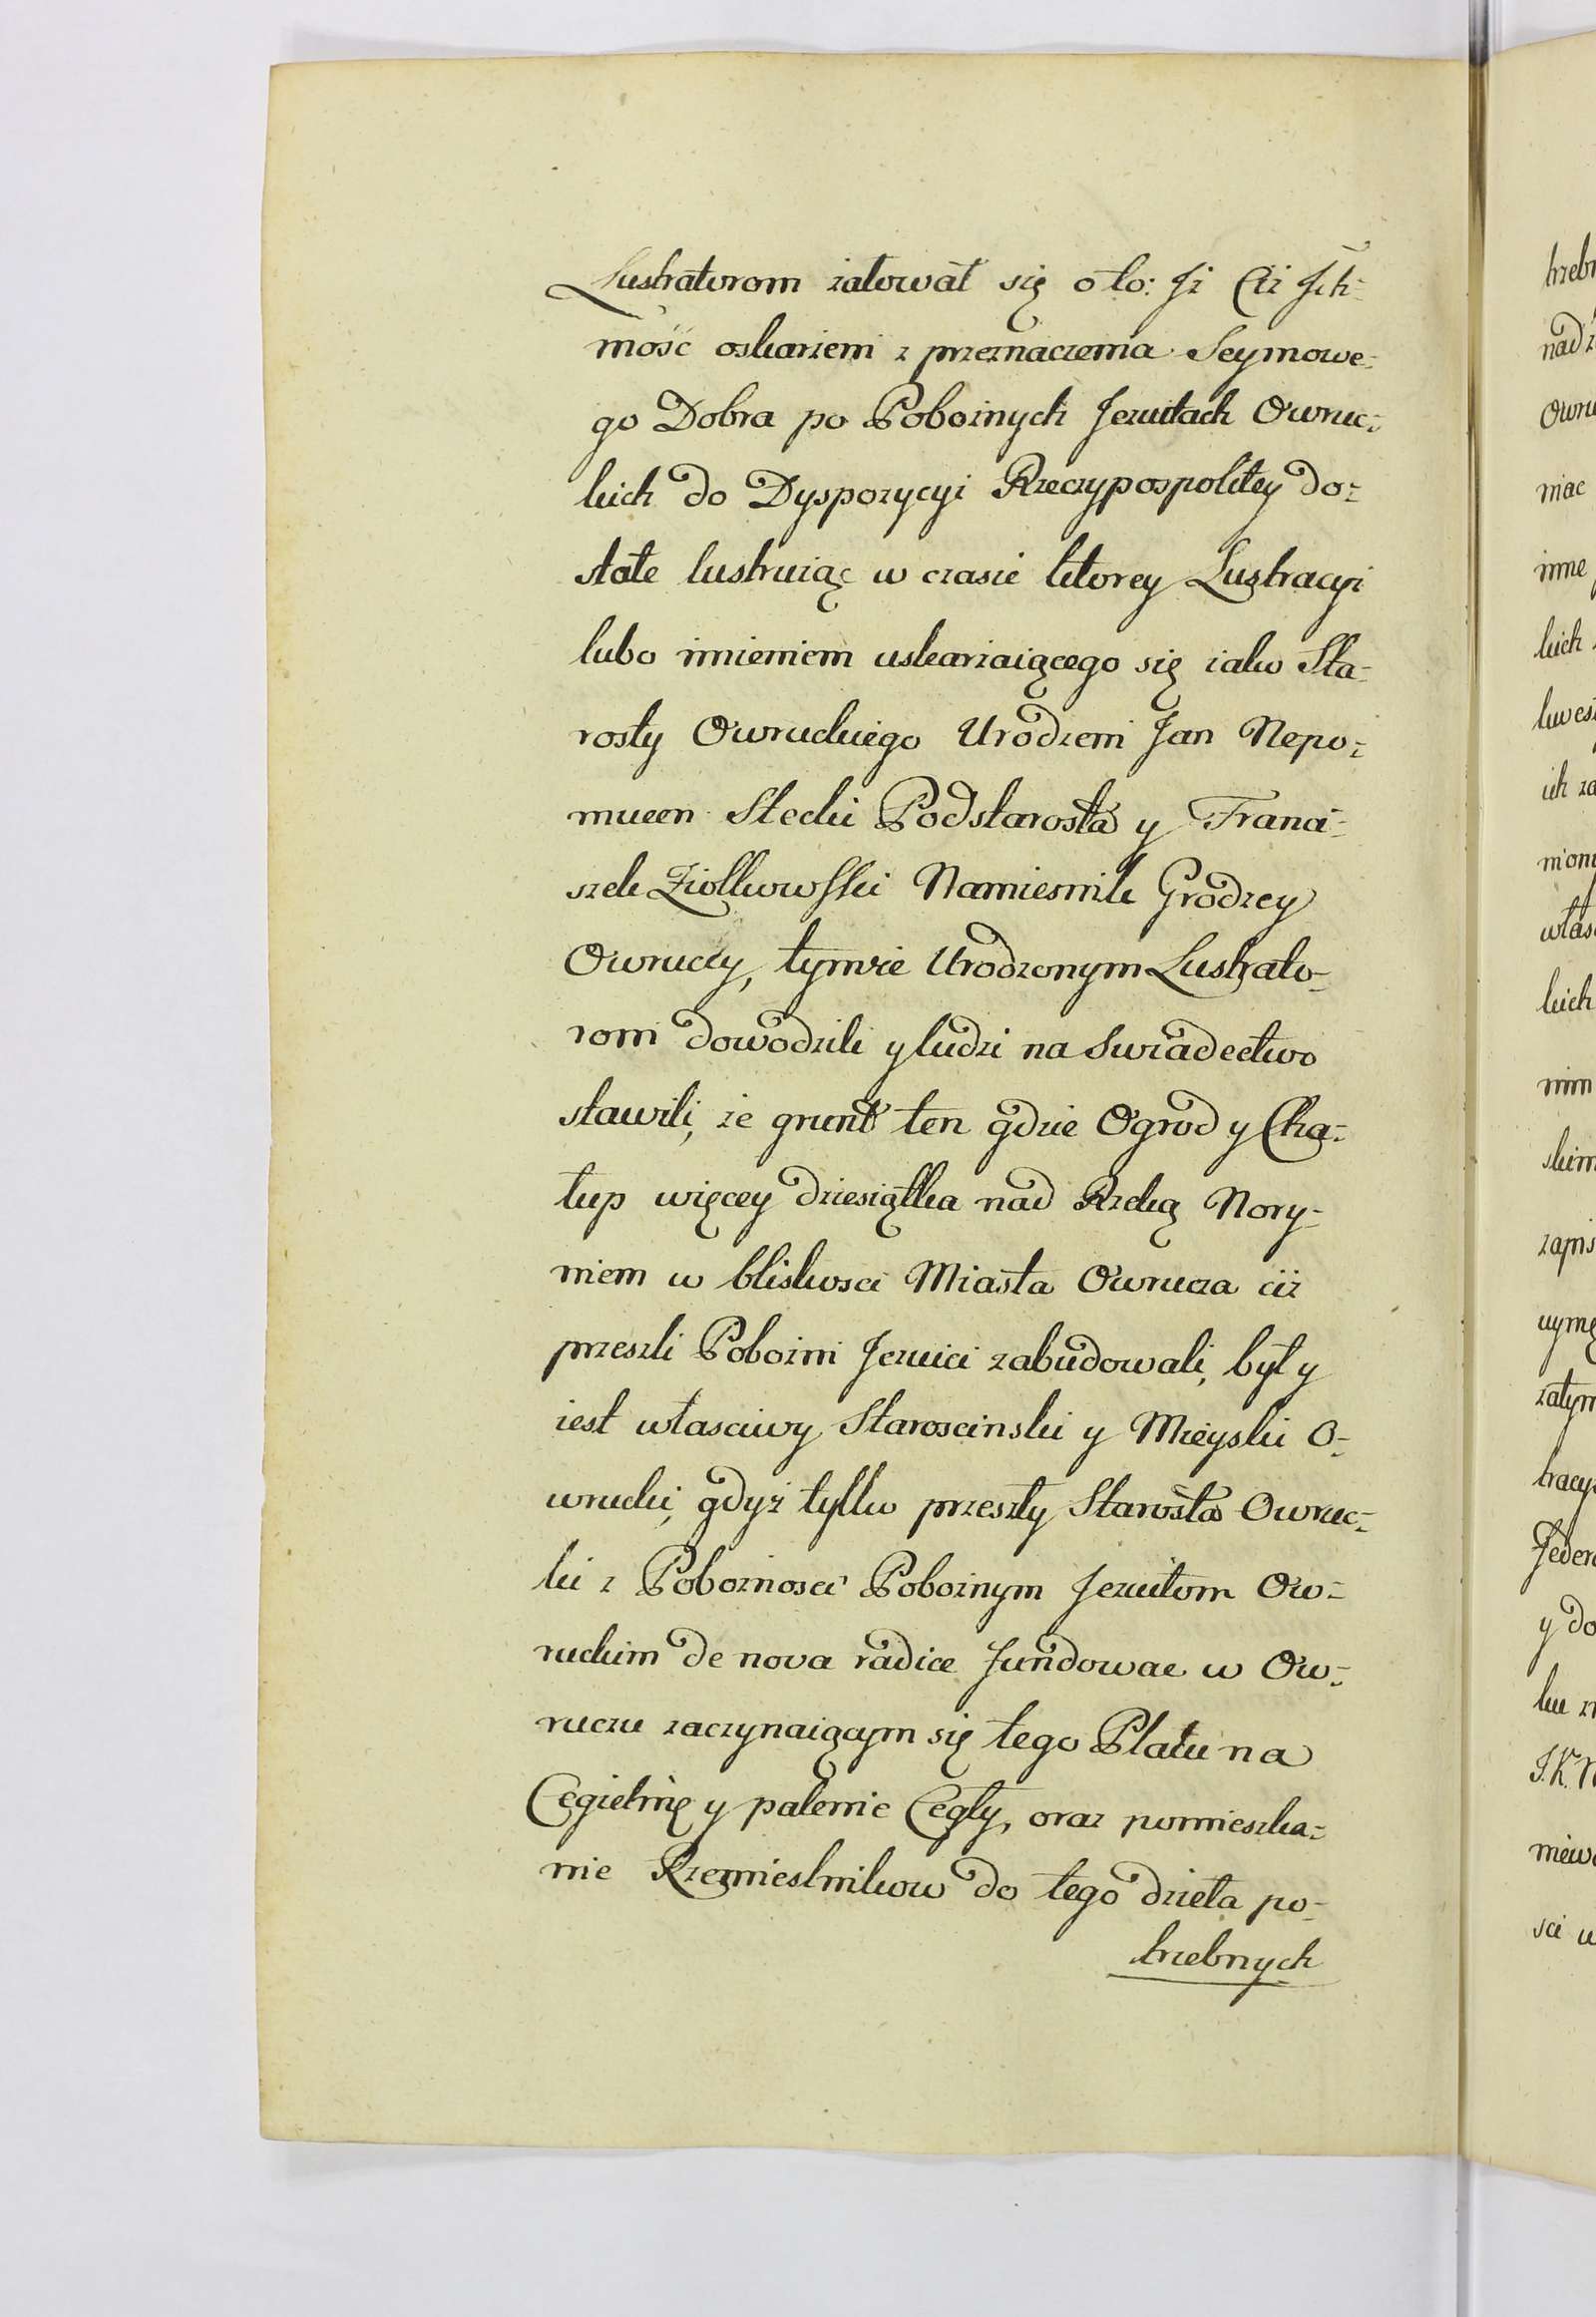 Lustratorom żałował się o to: Jż Ciż Jch-
mość oskarżeni z przeznaczenia Seymowe-
go Dobra po Pobożnych Jezuitach Owruc-
kich do Dyspozycyi Rzeczypospolitey do-
stałe lustruiąc w czasie ktorey Lustracyi
lubo imieniem uskarżaiącego się iako Sta-
rosty Owruckiego Urodzeni Jan Nepo-
mucen Stecki Podstarosta y Franci-
szek Ziołkowski Namiesnik Grodzcy
Owruccy, tymże Urodzonym Lustrato-
rom dowodzili y ludzi na Swiadectwo
stawili, że grunt ten gdzie Ogrod y Cha-
łup więcey dziesiątka nad Rzeką Nory-
niem w bliskosci Miasta Owrucza ciż
przeszli Pobożni Jezuici zabudowali, był y
iest własciwy Staroscinski y Mieyski O-
wrucki, gdyż tylko przeszły Starosta Owruc-
ki z Pobożnosci Pobożnym Jezuitom Ow-
ruckim de nova radice fundowac w Ow-
ruczu zaczynaiącym się tego Platu na
Cegielnię y palenie Cegły, oraz pomieszka-
nie Rzemieslnikow do tego dzieła po-
trzebnych
trzebn
nad
Owru
mac
inne
kich
ich za
własc
kich
nim
skim
zapis
zatym
tracyi
y do
J.K.
sci